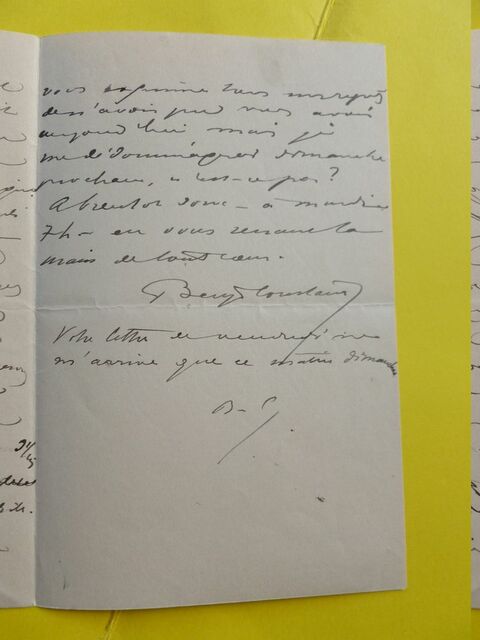 vous exprimer tous mes regrets
de n'avoir pu vous avoir
aujourd'hui mais je
me dédommagerai dimanche
prochain, n'est-ce pas?
A bientôt donc – à
7h – en vous serrant la
main de tout cœur.
Benj Constant
Votre lettre de vendredi ne
m'arrive que ce matin dimanche
B–C